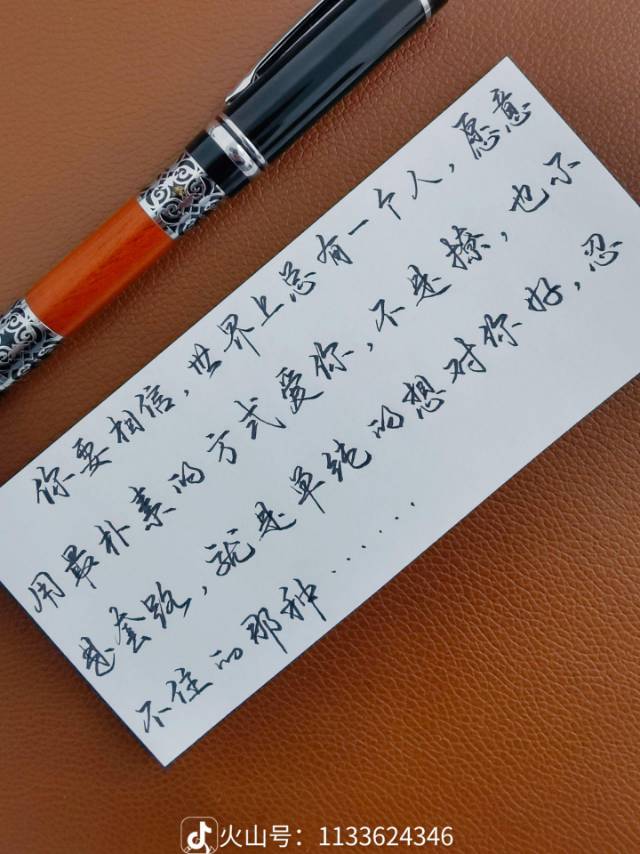 你要相信,世界上总有一个人,愿意
用最朴素的方式爱你,不是撩,也不
是套路,就是单纯的想对你好,忍
不住的那种......
火山号：1133624346